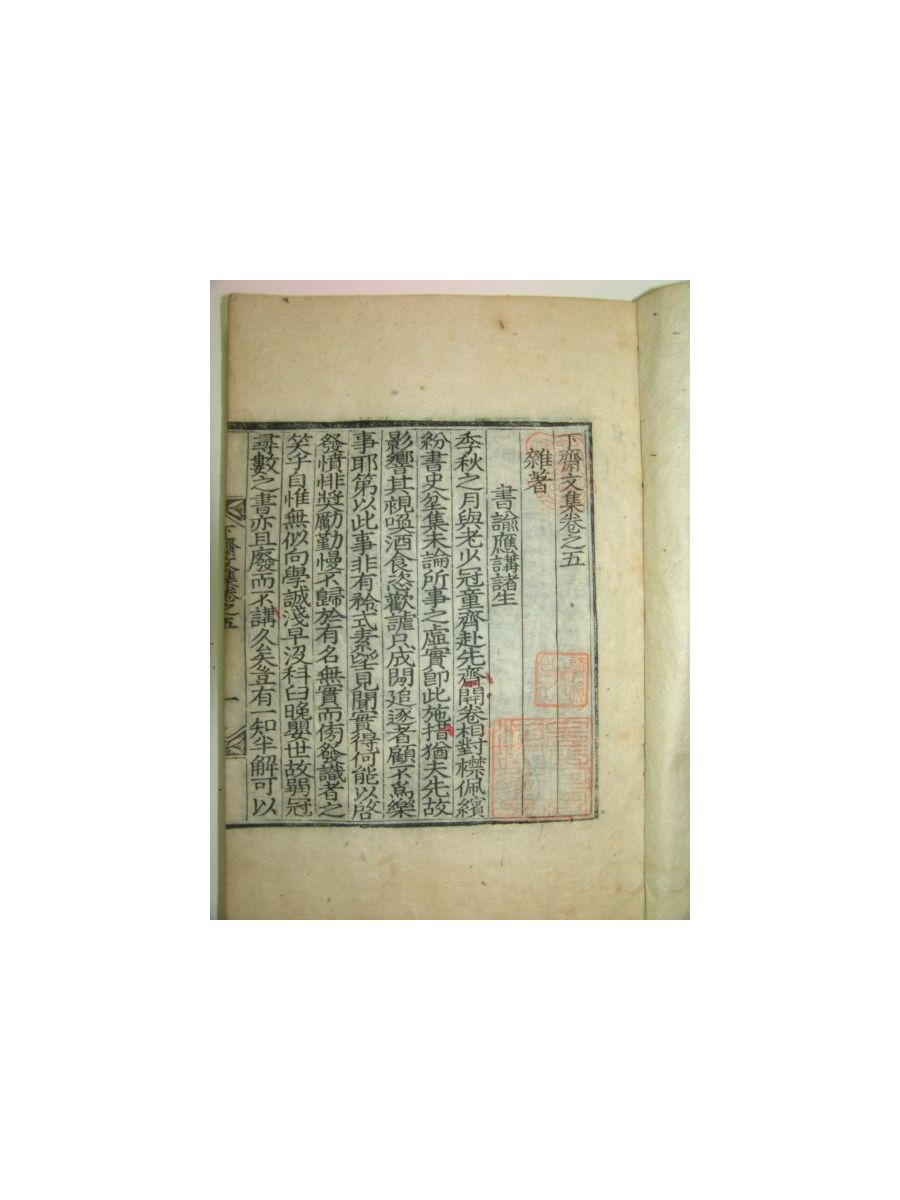 下齋文集卷之五
雜著
書諭應講諸生
季秋之月與老少冠童齊赴先齋開卷相對襟佩繽
紛書史坌集未論所事之虛實卽此施措猶夫先故
影響其視喚酒食恣歡謔只成閒追逐者顧不爲樂
事耶第以此事非有矜式素望見聞實得何能以啓
發憤悱奬勵勤慢不歸於有名無實而傍發識者之
笑乎自惟無似向學誠淺早沒科臼晚嬰世故弱冠
尋數之書亦且廢而不講久矣豈有一知半解可以
下齋文集卷之五 一